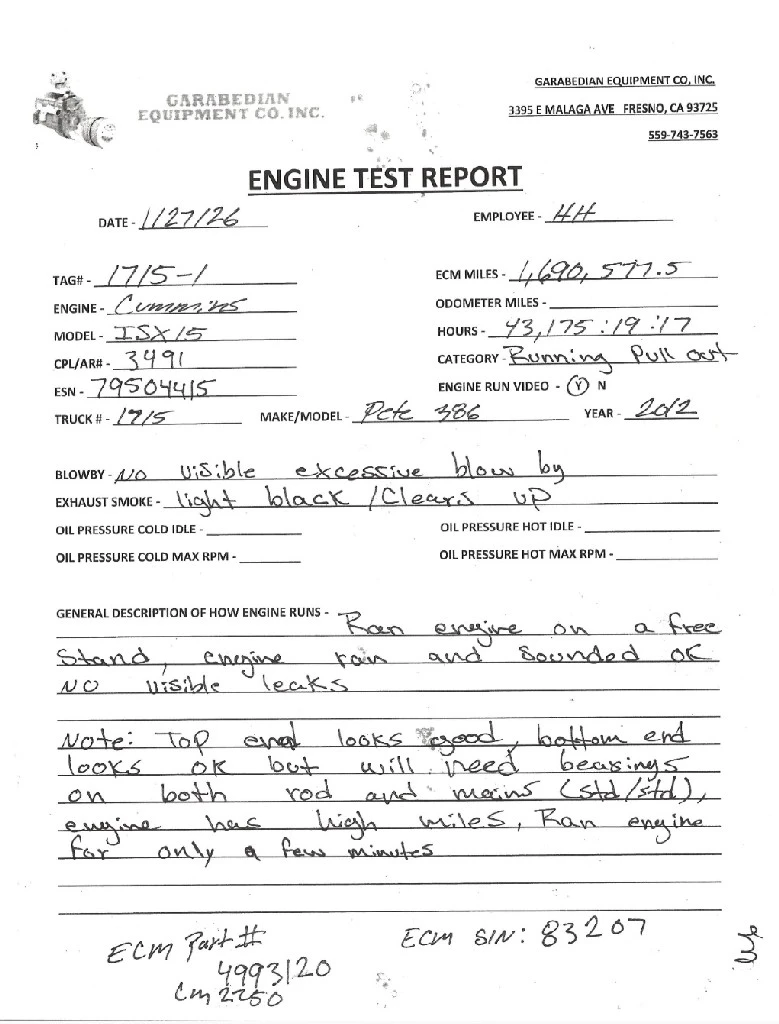 GARABEDIAN EQUIPMENT CO, INC.
GARABEDIAN
EQUIPMENT CO. INC.
3395 E MALAGA AVE FRESNO, CA 93725
559-743-7563
ENGINE TEST REPORT
DATE - 1/27/26 EMPLOYEE - HH
TAG# - 1715-1 ECM MILES - 1,690,577.5
ENGINE - Cummins ODOMETER MILES -
MODEL - ISX15 HOURS - 43,175:19:17
CPL/AR# - 3491 CATEGORY - Running Pull out
ESN - 79504415 ENGINE RUN VIDEO - Y N
TRUCK # - 1715 MAKE/MODEL - Pete 386 YEAR - 2012
BLOWBY - NO visible excessive blow by
EXHAUST SMOKE - light black /Clears up
OIL PRESSURE COLD IDLE - OIL PRESSURE HOT IDLE -
OIL PRESSURE COLD MAX RPM - OIL PRESSURE HOT MAX RPM -
GENERAL DESCRIPTION OF HOW ENGINE RUNS - Ran engine on a free
Stand, engine rain and Sounded OK
NO visible leaks
Note: Top end looks good, bottom end
looks ok but will need bearings
on both rod and mains (std/std),
engine has high miles, Ran engine
for only a few minutes
ECM Part# ECM S/N: 83207
4993120
Cm2250